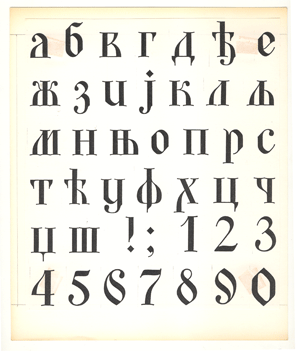 а б в г д ђ е
ж з и ј к л љ
м н њ о п р с
т ћ у ф х ц ч
џ ш ! ; 1 2 3
4 5 6 7 8 9 0